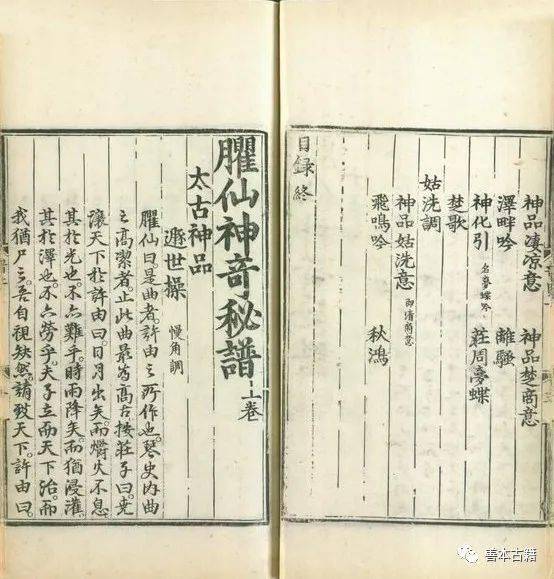 神品凄凉意 神品楚商意
澤畔吟 離騷
神化引 名夢蝶吟 莊周夢蝶
楚歌
姑洗調
神品姑洗意
飛鳴吟 秋鴻
目録終
臞仙神奇秘譜 上卷
太古神品
遯世操 慢角調
臞仙曰。是曲者。許由之所作也。琴史内曲
之高潔者。止此曲最為高古。按莊子曰。堯
讓天下於許由曰。日月出矣。而爝火不息。
其於光也。不亦難乎。時雨降矣。而猶浸灌。
其於澤也。不亦勞乎。夫子立而天下治。而
我猶尸之。吾自視缺然。請致天下。許由曰。
善本古籍